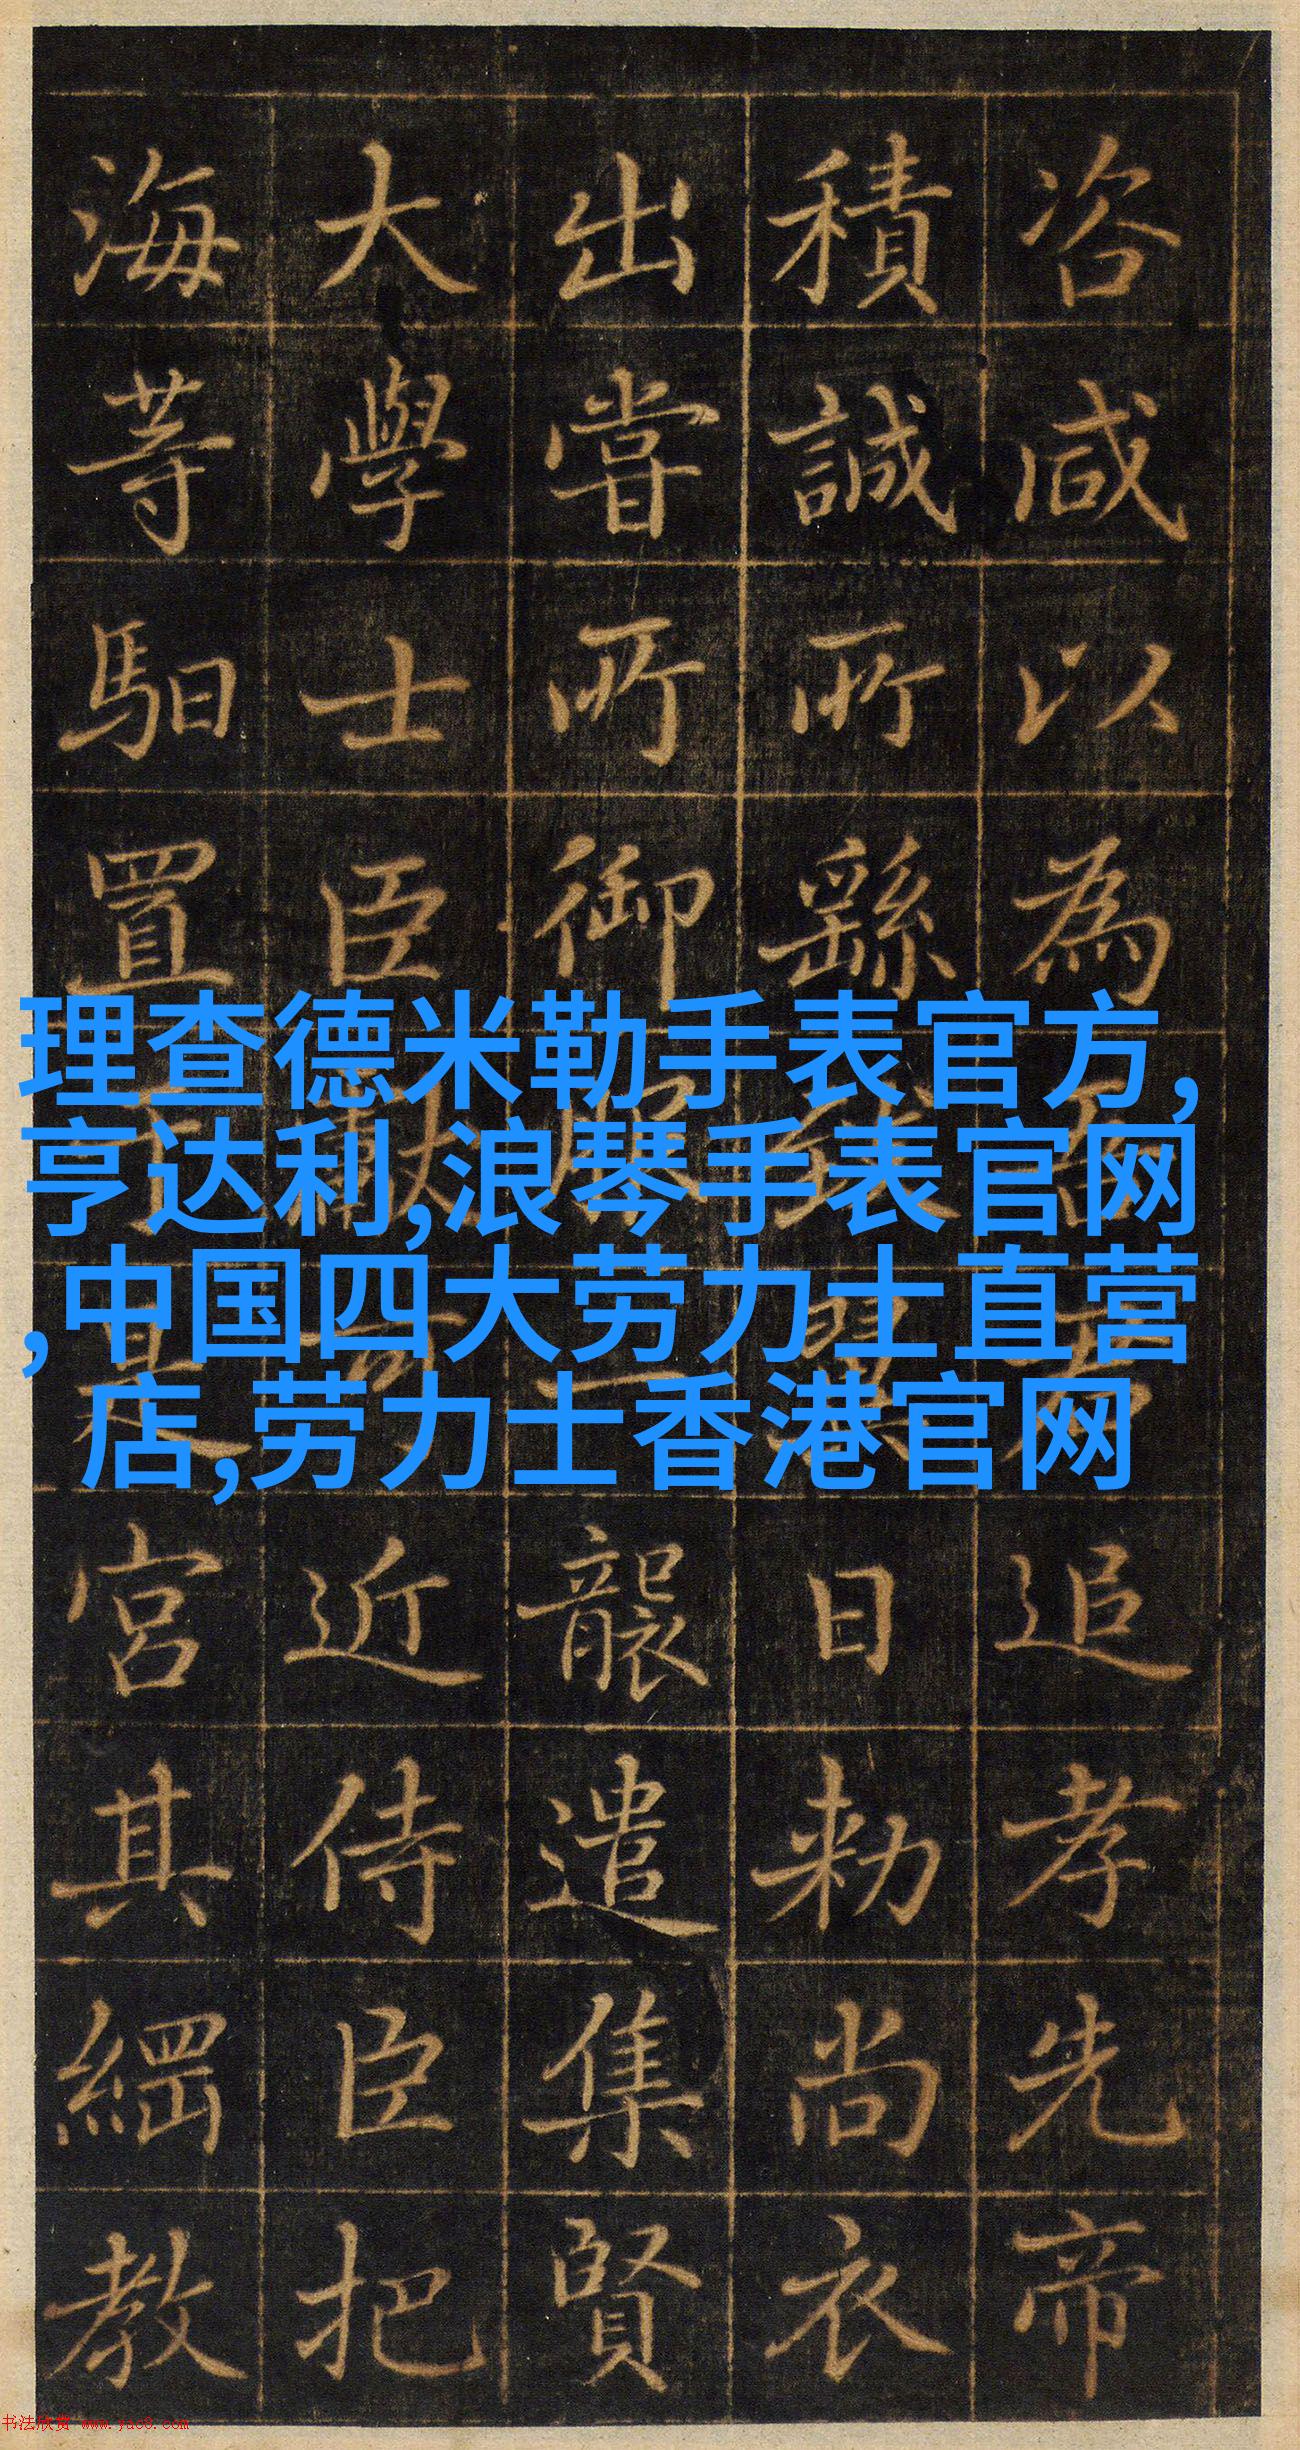 咨咸以為追孝先帝
積誠所繇日勅尚衣
出嘗所御服一襲遣集賢
大學士臣近侍臣把
海等馹置于是宮其綱教
理查德米勒手表官方,
亨达利,浪琴手表官网
,中国四大劳力士直营
店,劳力士香港官网
书法欣赏 www.yac8.com